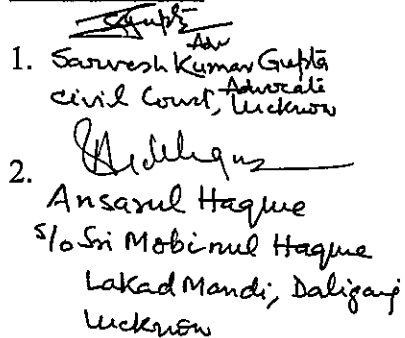 SGupta
Adv
1. Sarvesh Kumar Gupta
Advocate
Civil Court, Lucknow
2.
Ansarul Haque
S/o Sri Mobinul Haque
Lakad Mandi, Daliganj
Lucknow